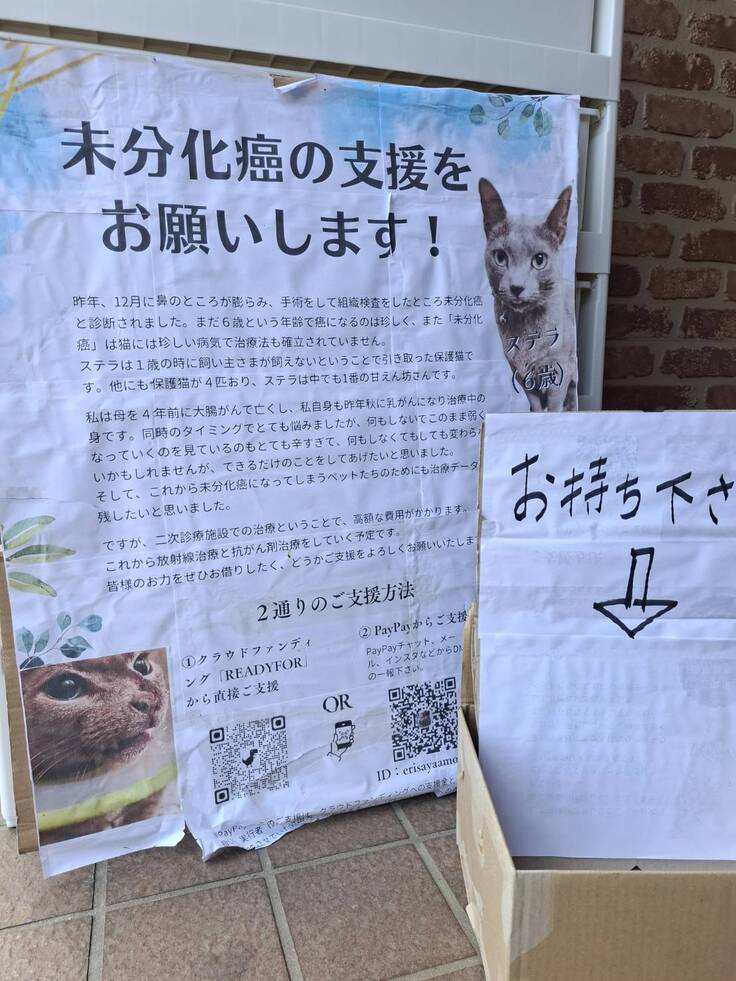 未分化癌の支援を
お願いします！
昨年、12月に鼻のところが膨らみ、手術をして組織検査をしたところ未分化癌
と診断されました。まだ６歳という年齢で癌になるのは珍しく、また「未分化
癌」は猫には珍しい病気で治療法も確立されていません。
ステラは１歳の時に飼い主さまが飼えないということで引き取った保護猫で
す。他にも保護猫が４匹おり、ステラは中でも1番の甘えん坊さんです。
ステラ
（6歳）
私は母を４年前に大腸がんで亡くし、私自身も昨年秋に乳がんになり治療中の
身です。同時のタイミングでとても悩みましたが、何もしないでこのまま弱く
なっていくのを見ているのもとても辛すぎて、何もしなくてもしても変わらな
いかもしれませんが、できるだけのことをしてあげたいと思いました。
そして、これから未分化癌になってしまうペットたちのためにも治療データ
残したいと思いました。
ですが、二次診療施設での治療ということで、高額な費用がかかります。
これから放射線治療と抗がん剤治療をしていく予定です。
皆様のお力をぜひお借りしたく、どうかご支援をよろしくお願いいたしま
２通りのご支援方法
①クラウドファンディ
ング「READYFOR」
から直接ご支援
OR
② PayPayからご支援
PayPayチャット、メー
ル、インスタなどからDM
の一報下さい。
ID：erisayaamo
お持ち下さ